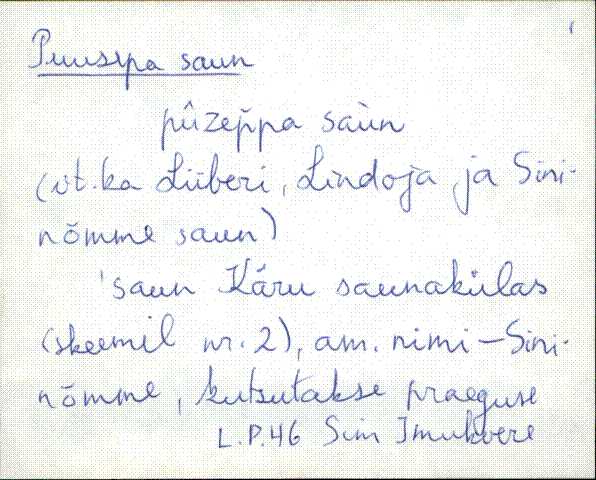 Puusepa saun
pûzeppa saùn
(vt. ka Liiberi, Lindoja ja Sini-
nõmme saun)
'saun Käru saunakülas
(skeemil nr. 2), am. nimi – Sini-
nõmme, kutsutakse praeguse
L.P.46 Sim Imukvere